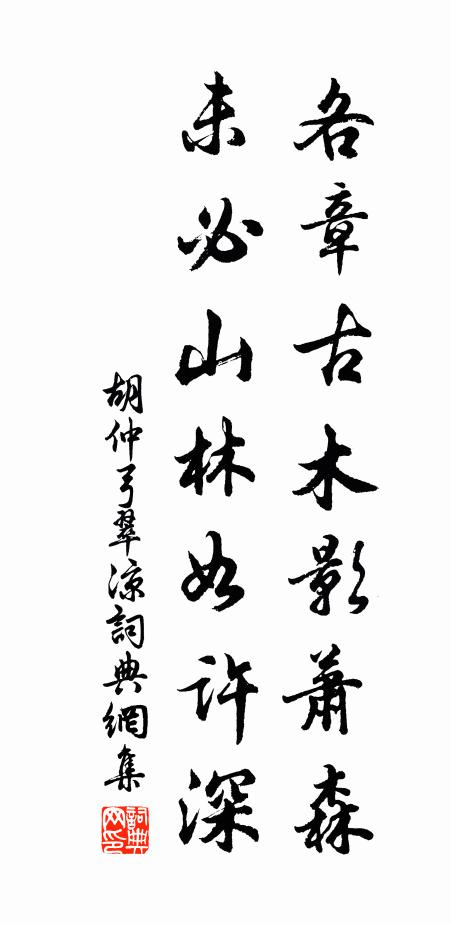 各章古木影蕭森
未必山林如許深
胡仲弓翠涼詞典網集
詞典网印